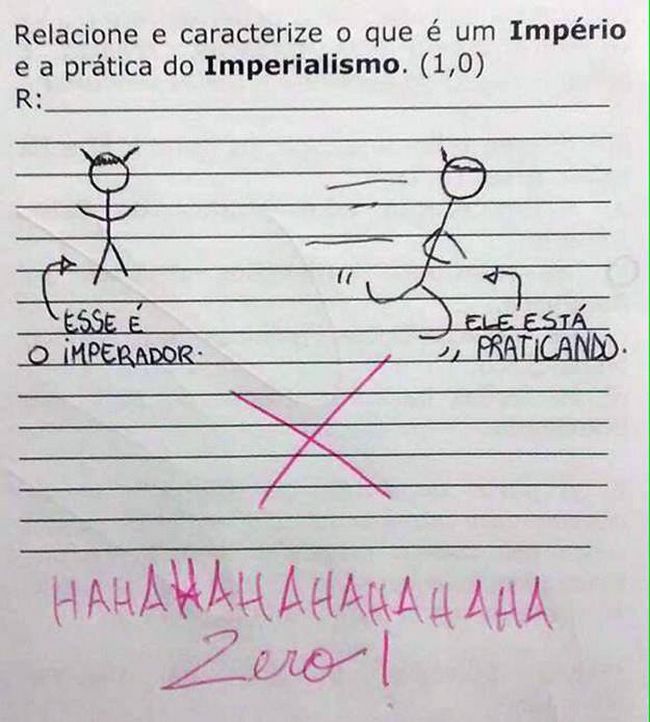 Relacione e caracterize o que é um Império
e a prática do Imperialismo. (1,0)
R:
ESSE É
O IMPERADOR.
ELE ESTÁ
PRATICANDO.
HAHAHAHAHAHAHAHAHA
Zero!